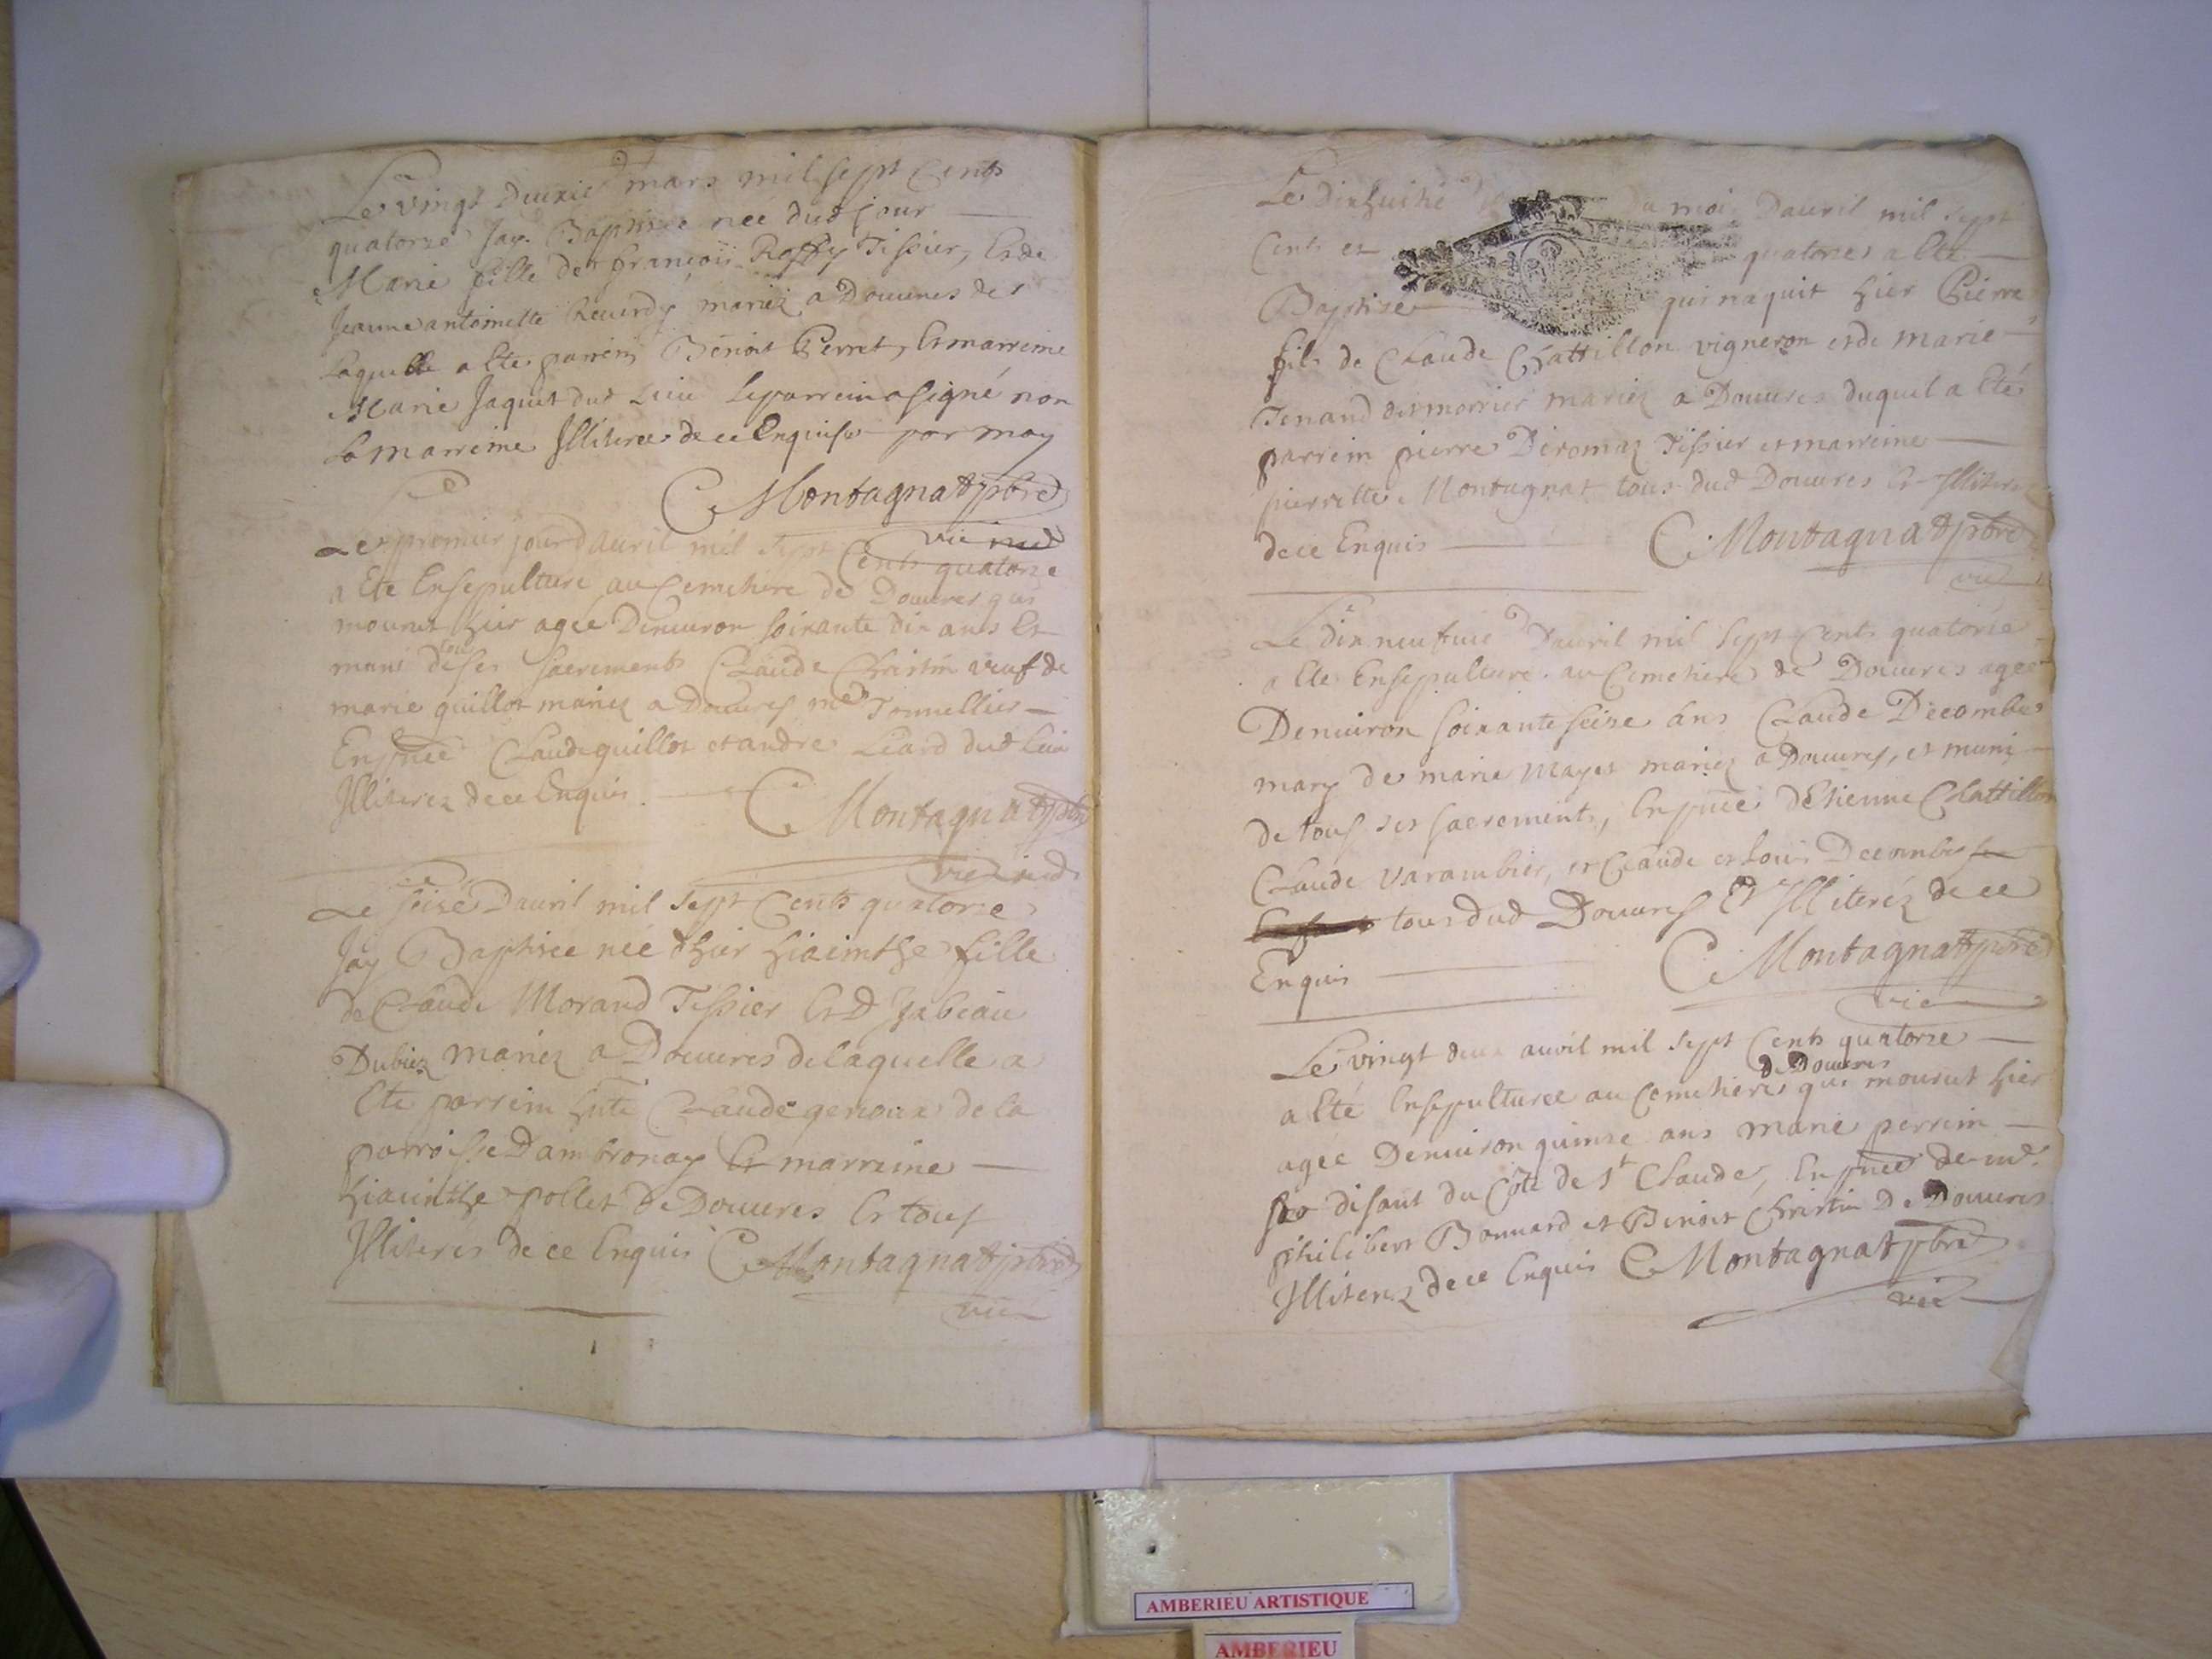 Le vingt deuxie mars mil sept Cents
quatorze Jay Baptisée neé dud jour
Marie fille de françois Roffy Tissier, Et de
Jeanne antoinette Reverdy mariez a Douvres de
Laquelle a Ete parrein Benoit Perret, Et marreine
Marie Jaquet dud Lieu Le parrein a signé non
La marreine Illiteree de ce Enquise par moy
C Montagnat pbre
vic
Le premier jour dauril mil sept Cents quatorze
a Ete Ensepulture au Cemetiere de Douvres qui
mourut hier agée Denuiron soixante dix ans Et
muni de ses sacrements Claude Christin veuf de
marie guillot mariez a Douvres me Tonnellier
En pnce Claude guillot et andre Liard dud Lieu
Illiterez de ce Enquis
C Montagnat pbre
vic
Le seize Dauril mil sept Cents quatorze
Jay Baptisee neé hier hiacinthe fille
de Claude Morand Tissier Et D Isabeau
Dubiez mariez a Douvres de laquelle a
Ete parrein Claude genoux de la
parroisse Dambronay Et marreine
hiacinthe pollet De Douvres Et tous
Illiterés de ce Enquis C Montagnat pbre
vic
Le dixhuitie du mois Dauril mil sept
Cents et quatorze a Eté
Baptisé qui naquit hier Pierre
fils de Claude Chattillon vigneron et de marie
Tenand mariez a Douvres duquel a Eté
parrein pierre Tissier et marreine
pierrette Montagnat tous dud Douvres Et Illiteres
de ce Enquis C Montagnat pbre
vic
Le dix neufuie Dauril mil sept Cents quatorze
a Ete Ensepulture au Cemetiere de Douvres agee
Denuiron soixante seize ans Claude Decombes
mary de marie mayet mariez a Douvres, et muni
de tous ses sacrements, En pnce dEtienne Chattillon
Claude Varambier, et Claude et Louis Decombes
tous dud Douvres Et Illiteréz de ce
Enquis C Montagnat pbre
vic
Le vingt deux auril mil sept Cents quatorze
de Douvres
a Eté Ensepulturee au Cemetiere qui mourut hier
agée Denuiron quinze ans marie perrein
se disant du Côté de St Claude, En pnce de me
philibert Bonnard et Benoit Christin De Douvres
Illiterez de ce Enquis C Montagnat pbre
vic
AMBERIEU ARTISTIQUE
AMBERIEU